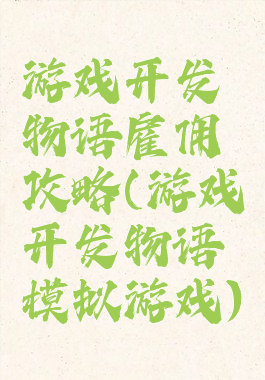 游戏开发
物语雇佣
攻略(游戏
开发物语
模拟游戏)